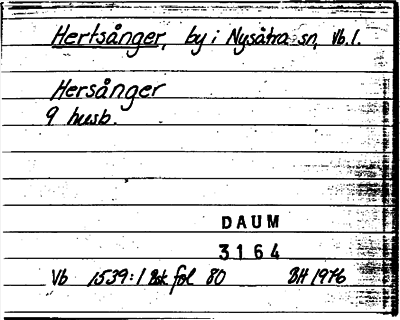 Hertsånger, by i Nysätra sn, Vb. l.
Hersånger
9 husb.
DAUM
3164
Vb 1539:1 Bsk fol 80 BH 1976